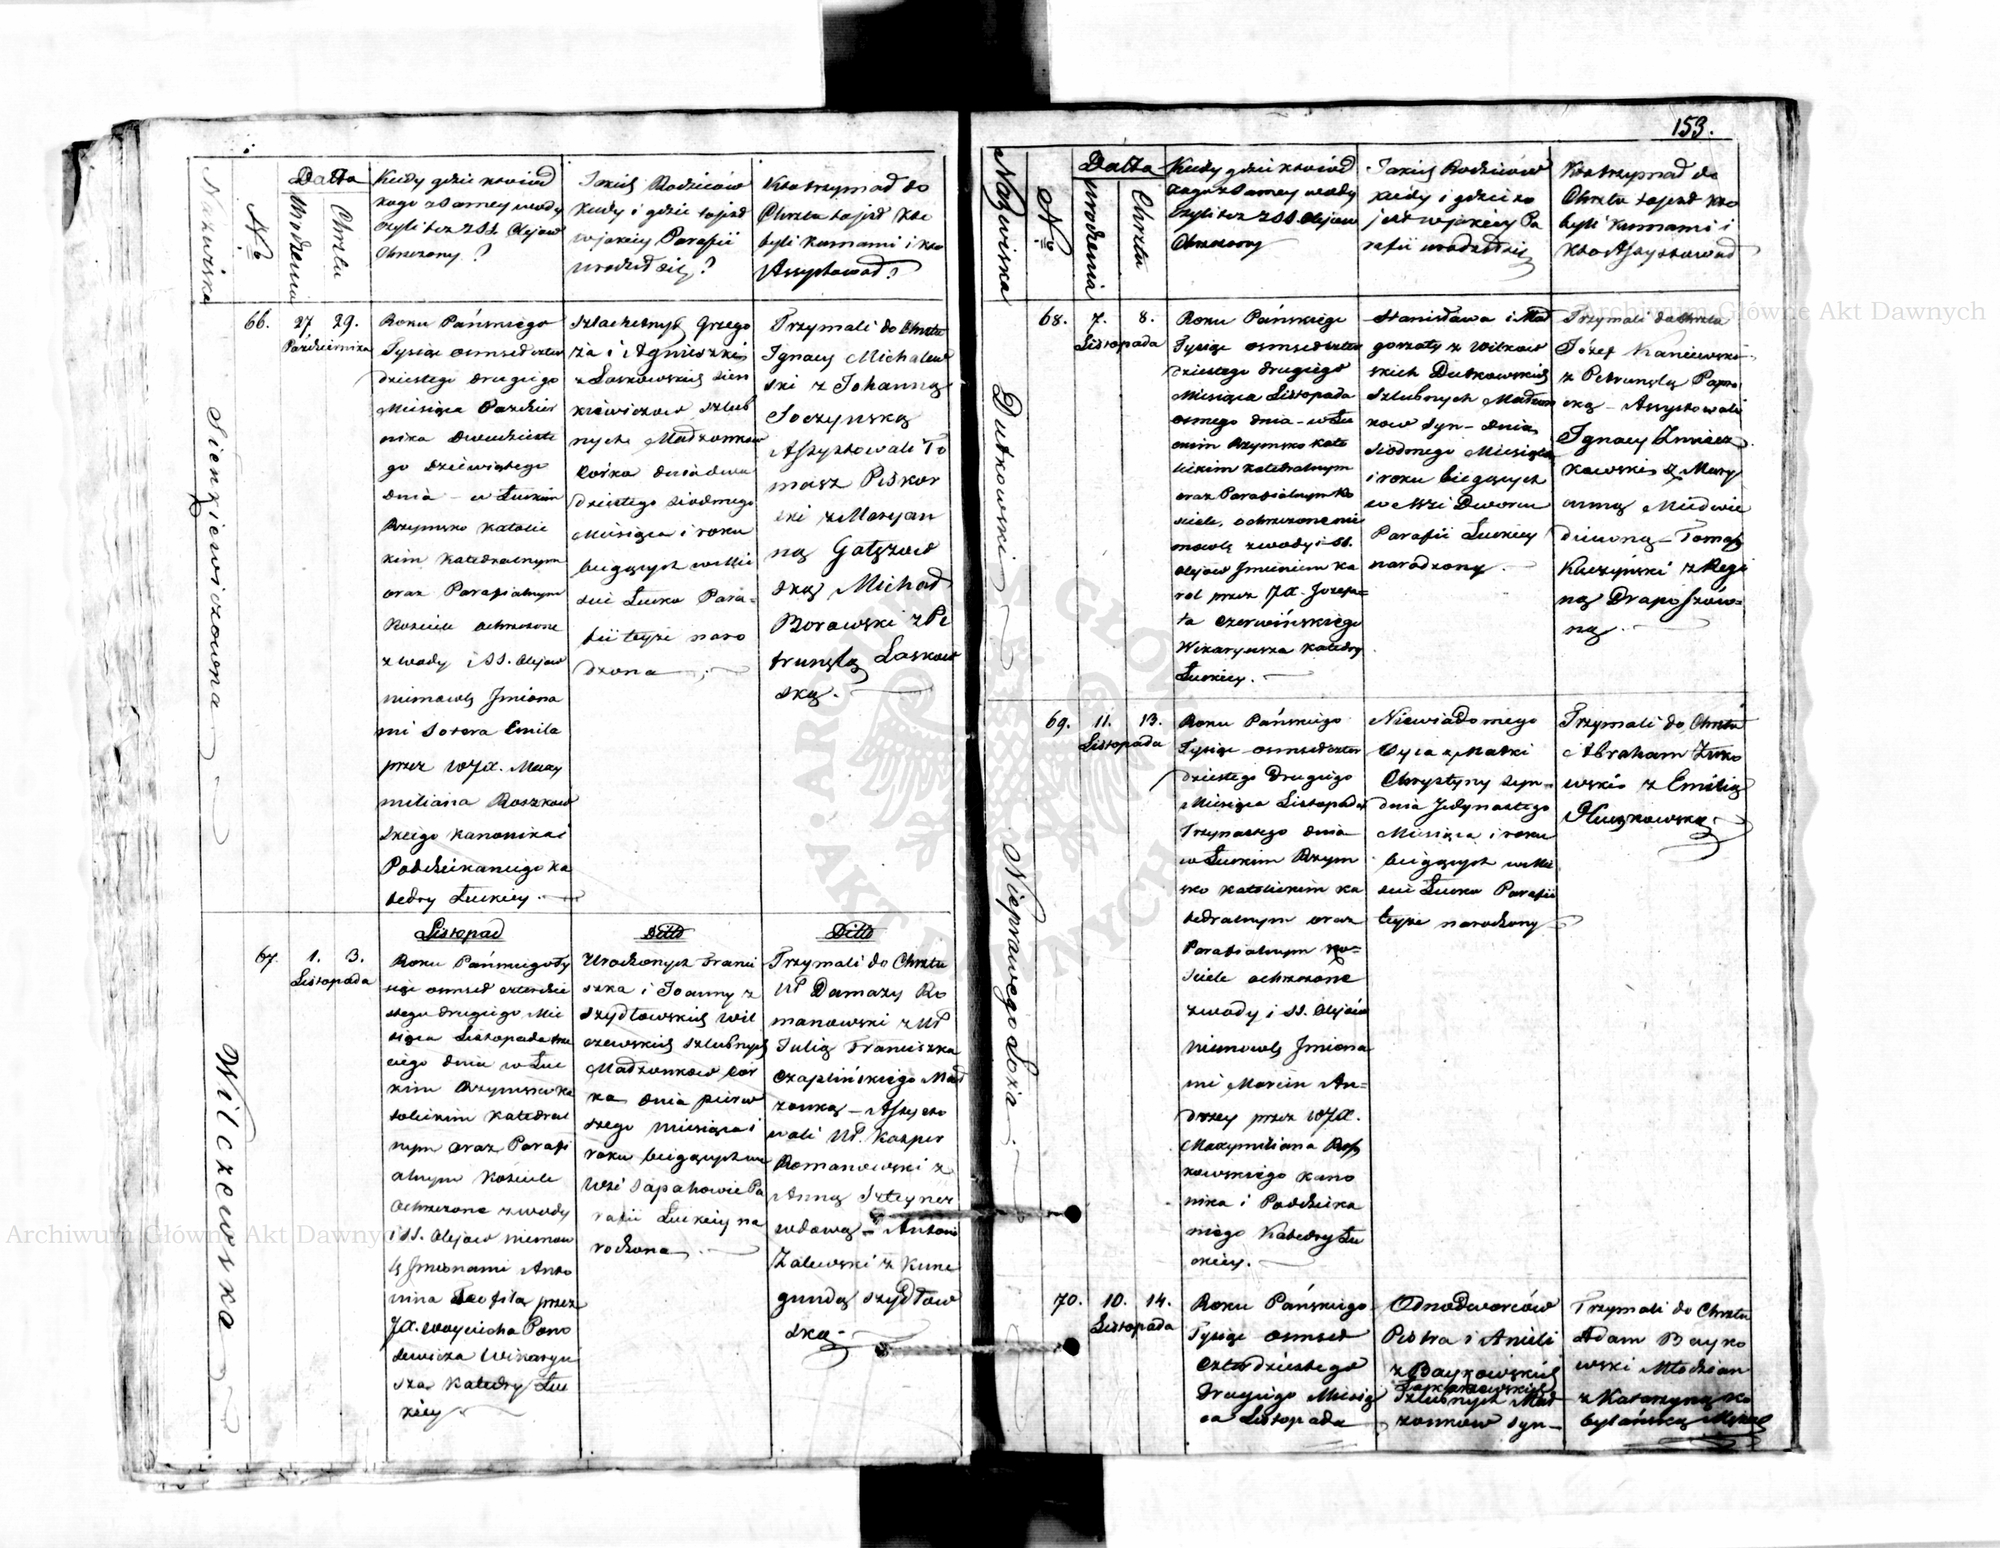 153.
Nazwiska
N<u>o</u>
Datta
Urodzenia
Chrztu
Kiedy gdzie kto i od
kogo z samey wody
czyli też z SS. Olejów
Chrzczony?
Jakich Rodziców
kiedy i gdzie to jest
w jakiey Parafii
urodził się?
Kto trzymał do
Chrztu to jest kto
byli kumami i kto
Assystował?
Sienkiewiczowna
66.
27 29.
Pazdziernika
Roku Pańskiego
Tysiąc osmset czter
dziestego drugiego
Miesiąca Pazdzier
nika dwudzieste
go dziewiątego
dnia - w Łuckim
Rzymsko Katolic
kim Katedralnym
oraz Parafialnym
Kościele ochrzczone
z wody i SS. Olejow
niemowlę Jmiona
mi Sotera Emila
przez WJX. Maxy
miliana Roszkow
skiego Kanonika i
Poddziekaniego Ka
tedry Łuckiey.
Szlachetnych Grzego
rza i Agnieszki
z Laskowskich Sien
kiewiczow szlub
nych Małżonkow
Corka dnia dwu
dziestego siodmego
Miesiąca i roku
bieżących w Mie
scie Łucku Para-
fii teyże naro
dzona
Trzymali do Chrztu
Ignacy Michalew
ski z Johanną
Soczyńską
Assystowali To
masz Piskor
ski z Maryan
ną Gołęzow
ską Michał
Borawski z Pe
trunelą Laskow
ską.
Wilczewska
67.
1. 3.
Listopada
Listopad
Roku Pańskiego Ty
siąc osmset czterdzie
stego drugiego Mie
siąca Listopada trze
ciego dnia w Łuc
kim Rzymsko Ka
tolickim Katedral
nym oraz Parafi
alnym Kościele
ochrzczone z wody
i SS. Olejow niemow
lę Jmionami Anto
nina Teofila przez
JX. Woyciecha Pono
sewicza Wikaryu
sza Katedry Łuc
kiey
Ditto
Urodzonych Franci
szka i Joanny z
Szydłowskich Wil
czewskich szlubnych
Małżonkow Cor
ka dnia pierw
szego Miesiąca i
roku bieżących we
Wsi Sapahowie Pa
rafii Łuckiey na
rodzona
Ditto
Trzymali do Chrztu
UP Damazy Ro
manowski z UP
Julią Franciszka
Czaplińskiego Mał
zonką - Assysto
wali UP. Kasper
Romanowski z
Anną Szteyner
wdową - Antoni
Zalewski z Kune
gundą Szydłow
ską -
Nazwiska
N<u>o</u>
Datta
Urodzenia
Chrztu
Kiedy gdzie kto i od
kogo z samey wody
czyli też z SS. Olejow
Chrzczony
Jakich Rodziców
kiedy i gdzie to
jest w jakiey Pa
rafii urodził się
Kto trzymał do
Chrztu to jest kto
byli kumami i
kto Assystował
Dutkowski
68.
7. 8.
Listopada
Roku Pańskiego
Tysiąc osmset czter
dziestego drugiego
Miesiąca Listopada
osmego dnia - w Łu
ckim Rzymsko Kato
lickim Katedralnym
oraz Parafialnym Ko
ściele, ochrzczone nie
mowlę z wody i SS.
Olejow Jmieniem Ka
rol przez JX. Jozefa-
ta Czerwińskiego
Wikaryusza Katedry
Łuckiey.
Stanisława i Mał
gorzaty z Witkow
skich Dutkowskich
Szlubnych Małżon
kow syn - dnia
siodmego Miesiąca
i roku bieżących
we Wsi Dworcu
Parafii Łuckiey
narodzony
Trzymali do Chrztu
Józef Kaniewski
z Petrunelą Papro
cką - Assystowali
Ignacy
kowski z Mary
anną Miedwie
diewną - Tomasz
Kuczyński z Regi
ną Draposzów-
ną
Nieprawego Łoża
69.
11. 13.
Listopada
Roku Pańskiego
Tysiąc osmset czter
dziestego drugiego
Miesiąca Listopada
Trzynastego dnia
w Łuckim Rzym
sko Katolickim Ka
tedralnym oraz
Parafialnym Ko-
ściele ochrzczone
z wody i SS. Olejów
niemowlę Jmiona
mi Marcin An-
drzey przez WJX.
Maxymiliana Rosz
kowskiego Kano
nika i Poddzieka
niego Katedry Łu
ckiey.
Niewiadomego
Oyca z Matki
Chrystyny syn -
dnia Jedynastego
Miesiąca i roku
bieżących w Mie
scie Łucku Parafii
teyże narodzony
Trzymali do Chrztu
Abraham Żuko
wski z Emilią
70.
10. 14.
Listopada
Roku Pańskiego
Tysiąc osmset
czterdziestego
drugiego Miesią
ca Listopada
Odnodworców
Piotra i Anieli
z Baykowskich
Szlubnych Mał
zonkow syn -
Trzymali do Chrztu
Adam Bayko
wski Młodzian
z Katarzyną Ko
bylańską
Archiwum Główne Akt Dawnych
Archiwum Główne Akt Dawnych